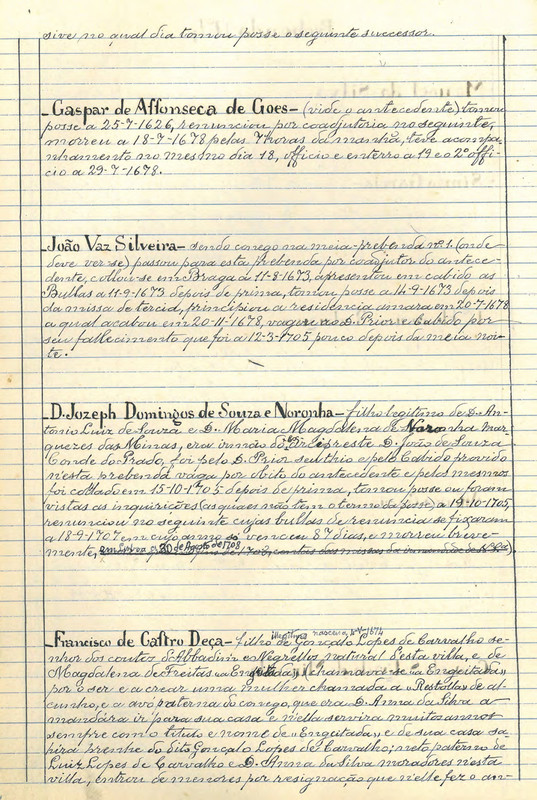 sive no qual dia tomou posse o seguinte successor.
Gaspar de Affonseca de Goes – (vide o antecedente) tomou
posse a 25-7-1626, renunciou por coadjutoria no seguinte,
morreu a 18-7-1678 pelas 7 horas da manhã, teve acompa-
nhamento no mesmo dia 18, officio e enterro a 19 e o 2º offi-
cio a 29-7-1678.
João Vaz Silveira – sendo conego na meia-prebenda nº 1. (onde
deve ver-se) passou para esta prebenda por coadjutor do antece-
dente, collou-se em Braga a 11-8-1673, apresentou em cabido as
Bullas a 11-9-1673 depois de prima, tomou posse a 14-9-1673 depois
da missa de tercia, principiou a residencia amara em 20-7-1678
a qual acabou em 20-11-1678, vagou ao D. Prior e Cabido por
seu fallecimento que foi a 12-3-1705 pouco depois da meia noi-
te.
D. Jozeph Domingos de Souza e Noronha – filho legitimo de D. An-
tonio Luiz de Souza e D. Maria Magdalena de Noronha mar-
quezes das Minas, era irmão do Arcipreste D. João de Souza
Conde do Prado, foi pelo D. Prior seu thio e pelo Cabido provido
n'esta prebenda vaga por obito do antecedente e pelos mesmos
foi collado em 15-10-1705 depois de prima, tomou posse ou foram
vistas as inquirições (as quaes não tem o termo da posse) a 19-10-1705,
renunciou no seguinte cujas bullas de renuncia se fixaram
a 18-9-1707 em cujo anno só venceu 87 dias, e morreu breve-
mente, em Lisboa a 30 de Agosto de 1708
Francisco de Castro Deça – filho illegitimo nasceu de Gonçalo Lopes de Carvalho se-
nhor dos coutos d'Abbadim e Negrellos natural d'esta villa, e de
Magdalena de Freitas "a Engeitada" (chamava-se "a Engeitada"
por o ser e a crear uma mulher chamada a "Restolla" de al-
cunho, e a avo paterna do conego, que era D. Anna da Silva a
mandára ir para sua casa e n'ella servira muitos annos
sempre com o titulo e nome de "Engeitada", e de sua casa sa-
hira prenhe do dito Gonçalo Lopes de Carvalho; neto paterno de
Luiz Lopes de Carvalho e D. Anna da Silva moradores n'esta
villa, entrou de menores por resignação que n'elle fez o an-